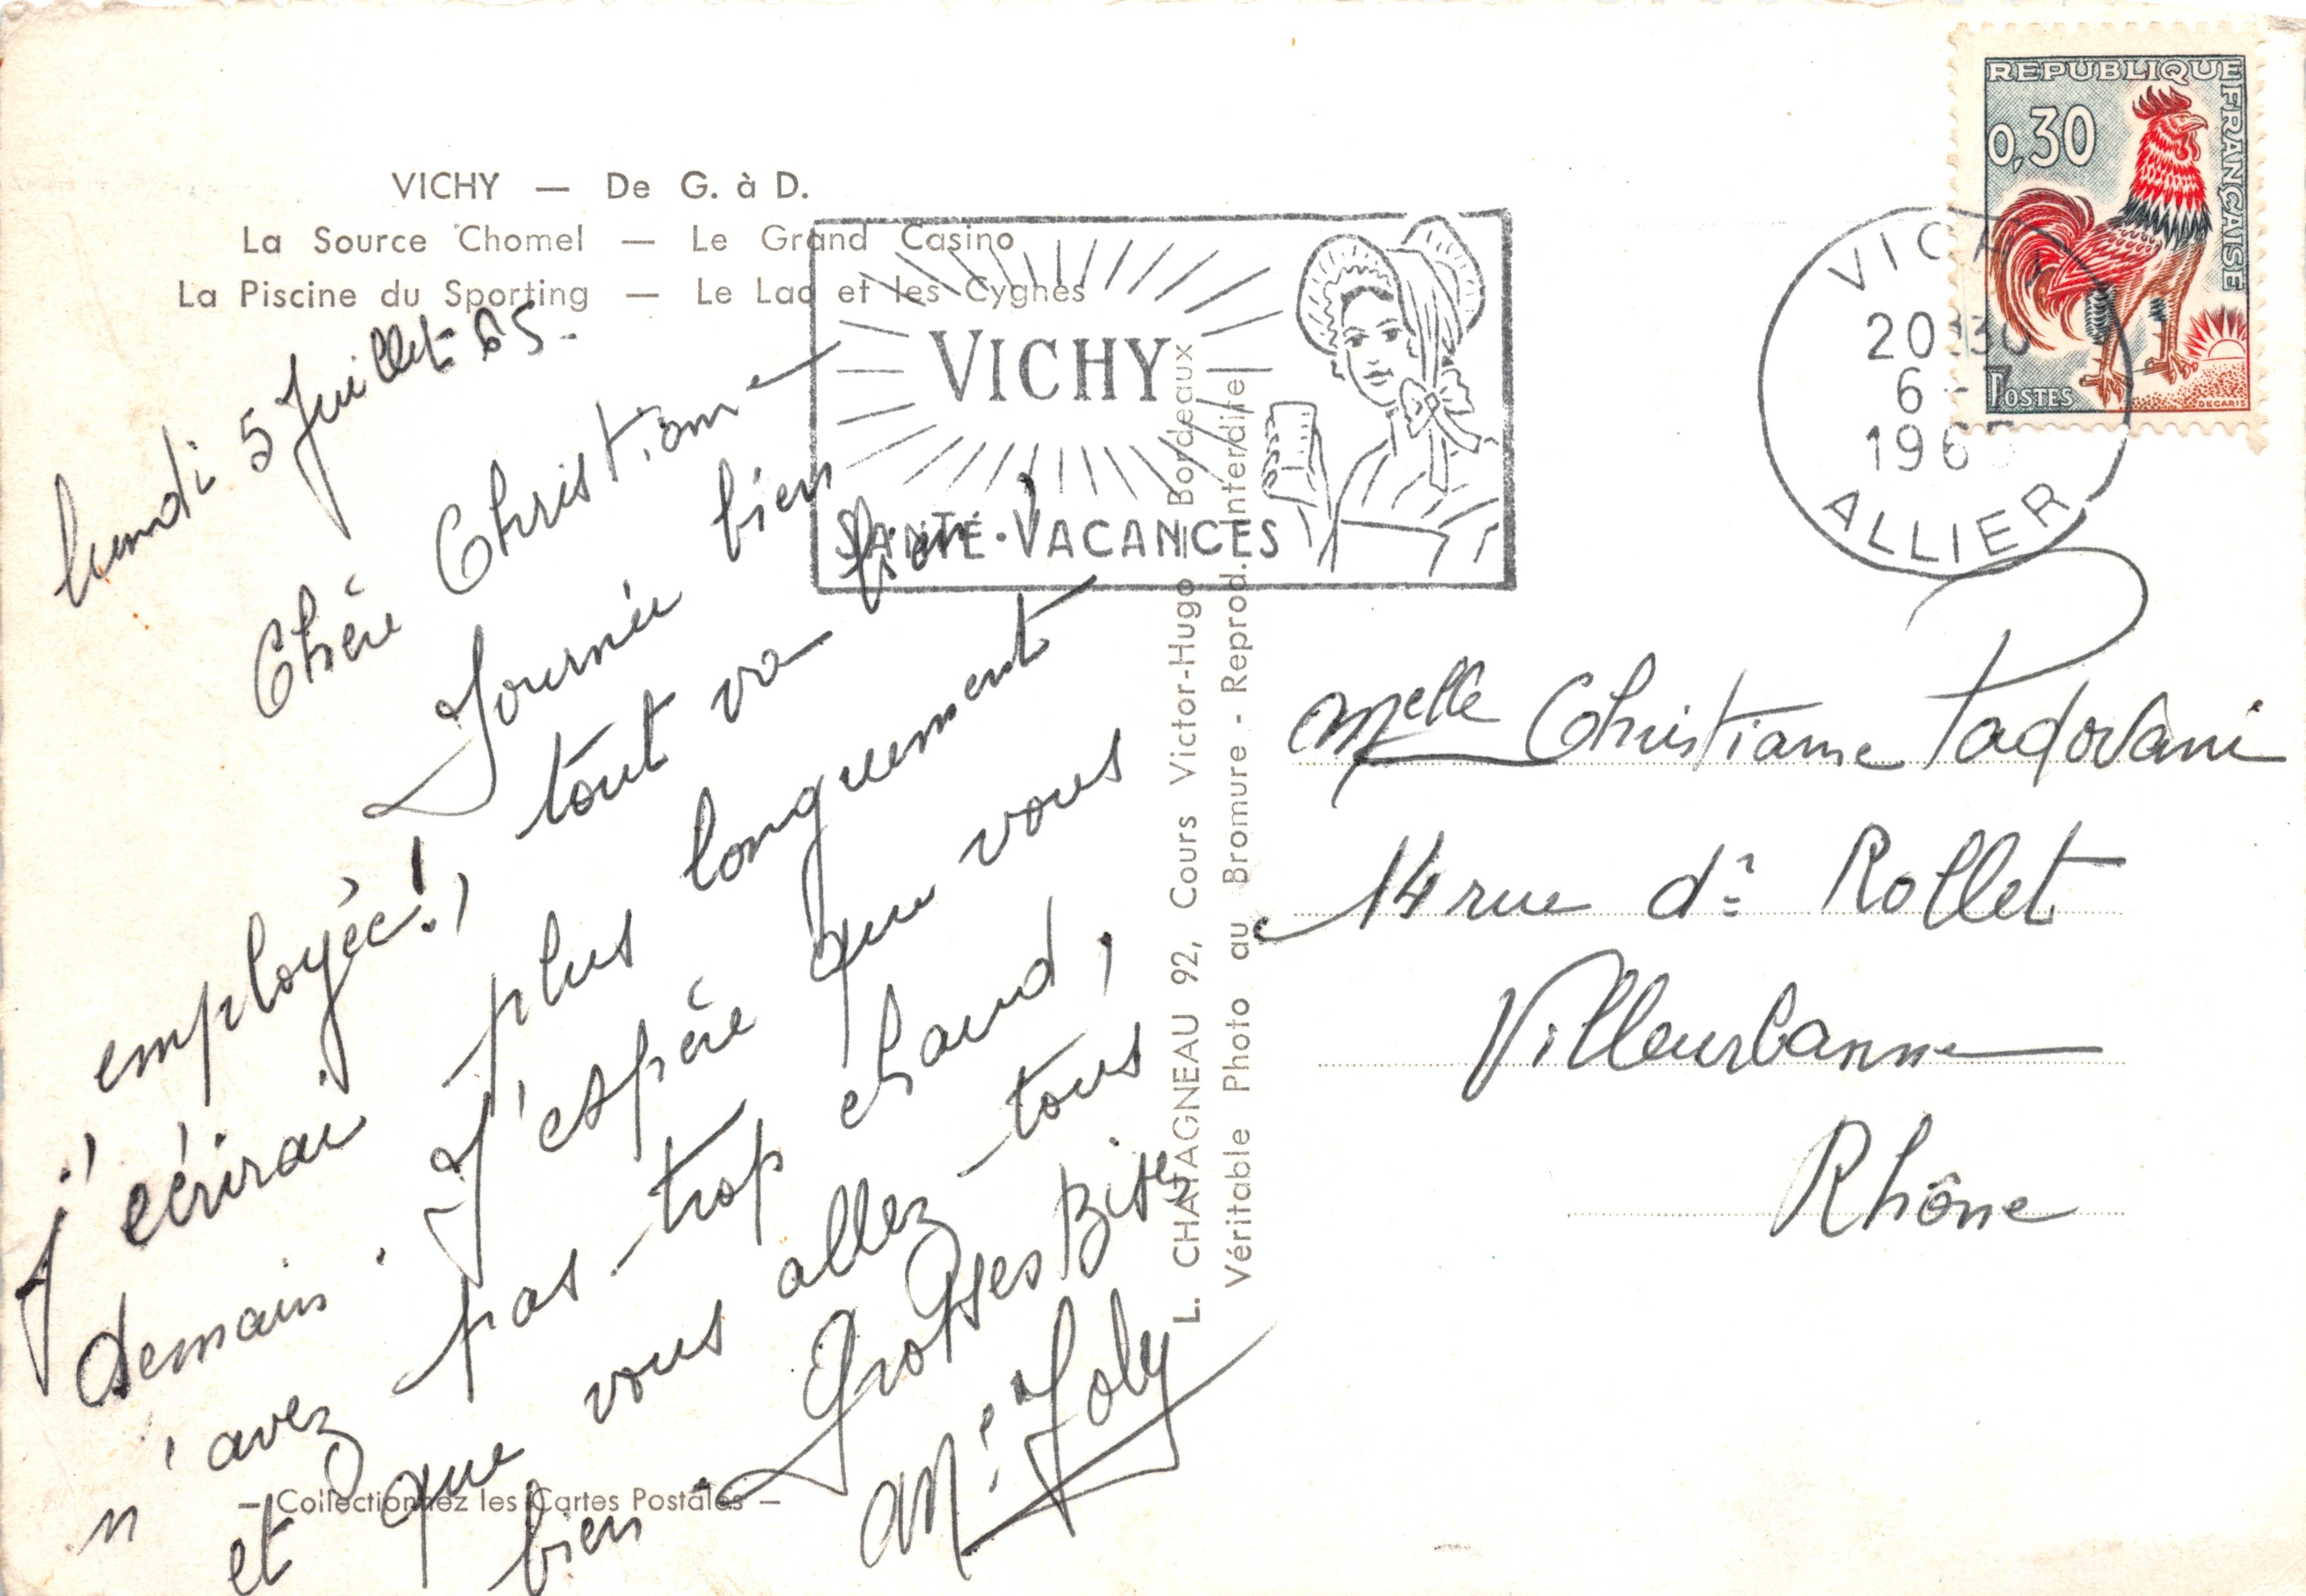 VICHY — De G. à D.
La Source Chomel — Le Grand Casino
La Piscine du Sporting — Le Lac et les Cygnes
REPUBLIQUE FRANÇAISE
0,30
POSTES
DECARIS
VICHY
SANTÉ·VACANCES
VICHY
20H30
6-7
1965
ALLIER
lundi 5 Juillet 65-
Chère Christiane
Journée bien
employée!, tout va bien!
J'écrirai plus longuement
demain. J'espère que vous
n'avez pas trop chaud,
et que vous allez tous
bien - Grosses Bises
Me Joly
L. CHATAGNEAU 92, Cours Victor-Hugo Bordeaux
Véritable Photo au Bromure - Reprod. Interdite
Melle Christiane Padovani
14 rue dr Rollet
Villeurbanne
Rhône
— Collectionnez les Cartes Postales —